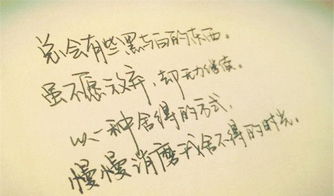 总会有些黑与白的东西。
虽不愿放弃，却无力偿夜。
以一种舍得的方式，
慢慢消磨我舍不得的时光。